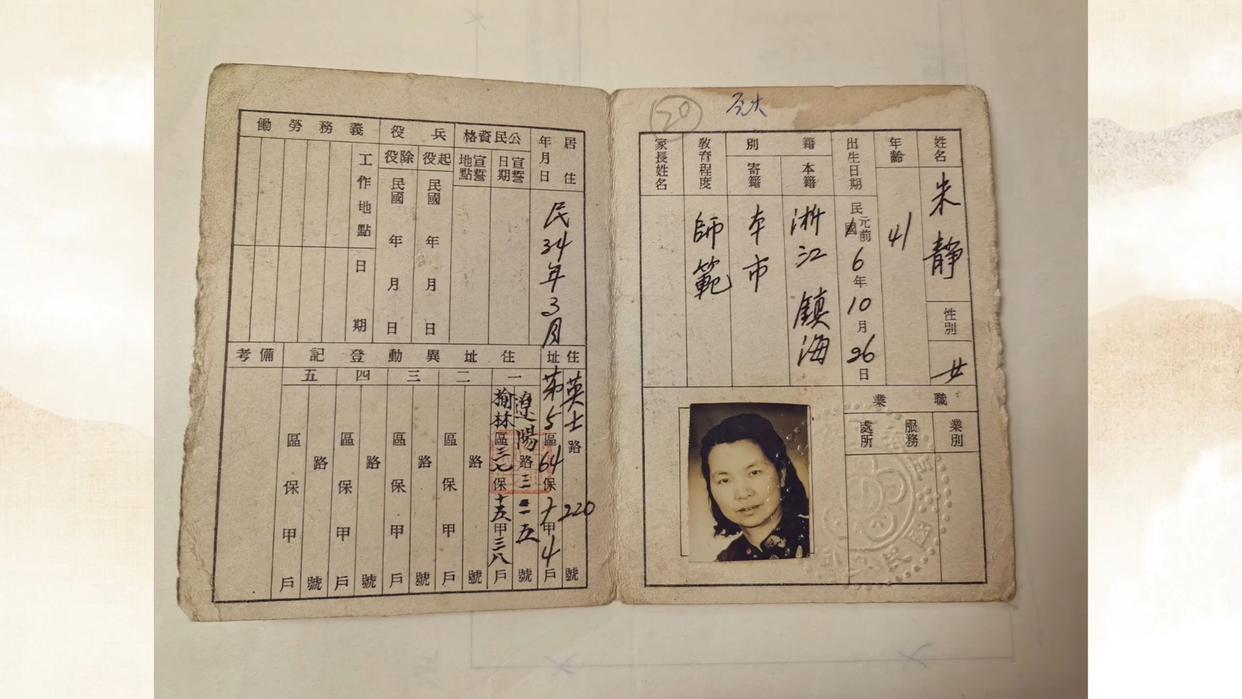 姓名 朱靜
性別 女
年齡 41
出生日期 民國元前6年10月26日
籍別
本籍 浙江鎮海
寄籍 本市
教育程度 師範
家長姓名
職業
業別
服務
處所
20
居住
年月日
民34年3月
公民資格
宣誓日期
宣誓地點
兵役
起役 民國 年 月 日
除役 民國 年 月 日
義務勞働
工作地點
日期
住址
英士路220號
第5區64保十甲4戶
住址異動登記
一
遼陽路三一五號
榆林區三七保十五甲三八戶
二
路 號
區 保 甲 戶
三
路 號
區 保 甲 戶
四
路 號
區 保 甲 戶
五
路 號
區 保 甲 戶
備考